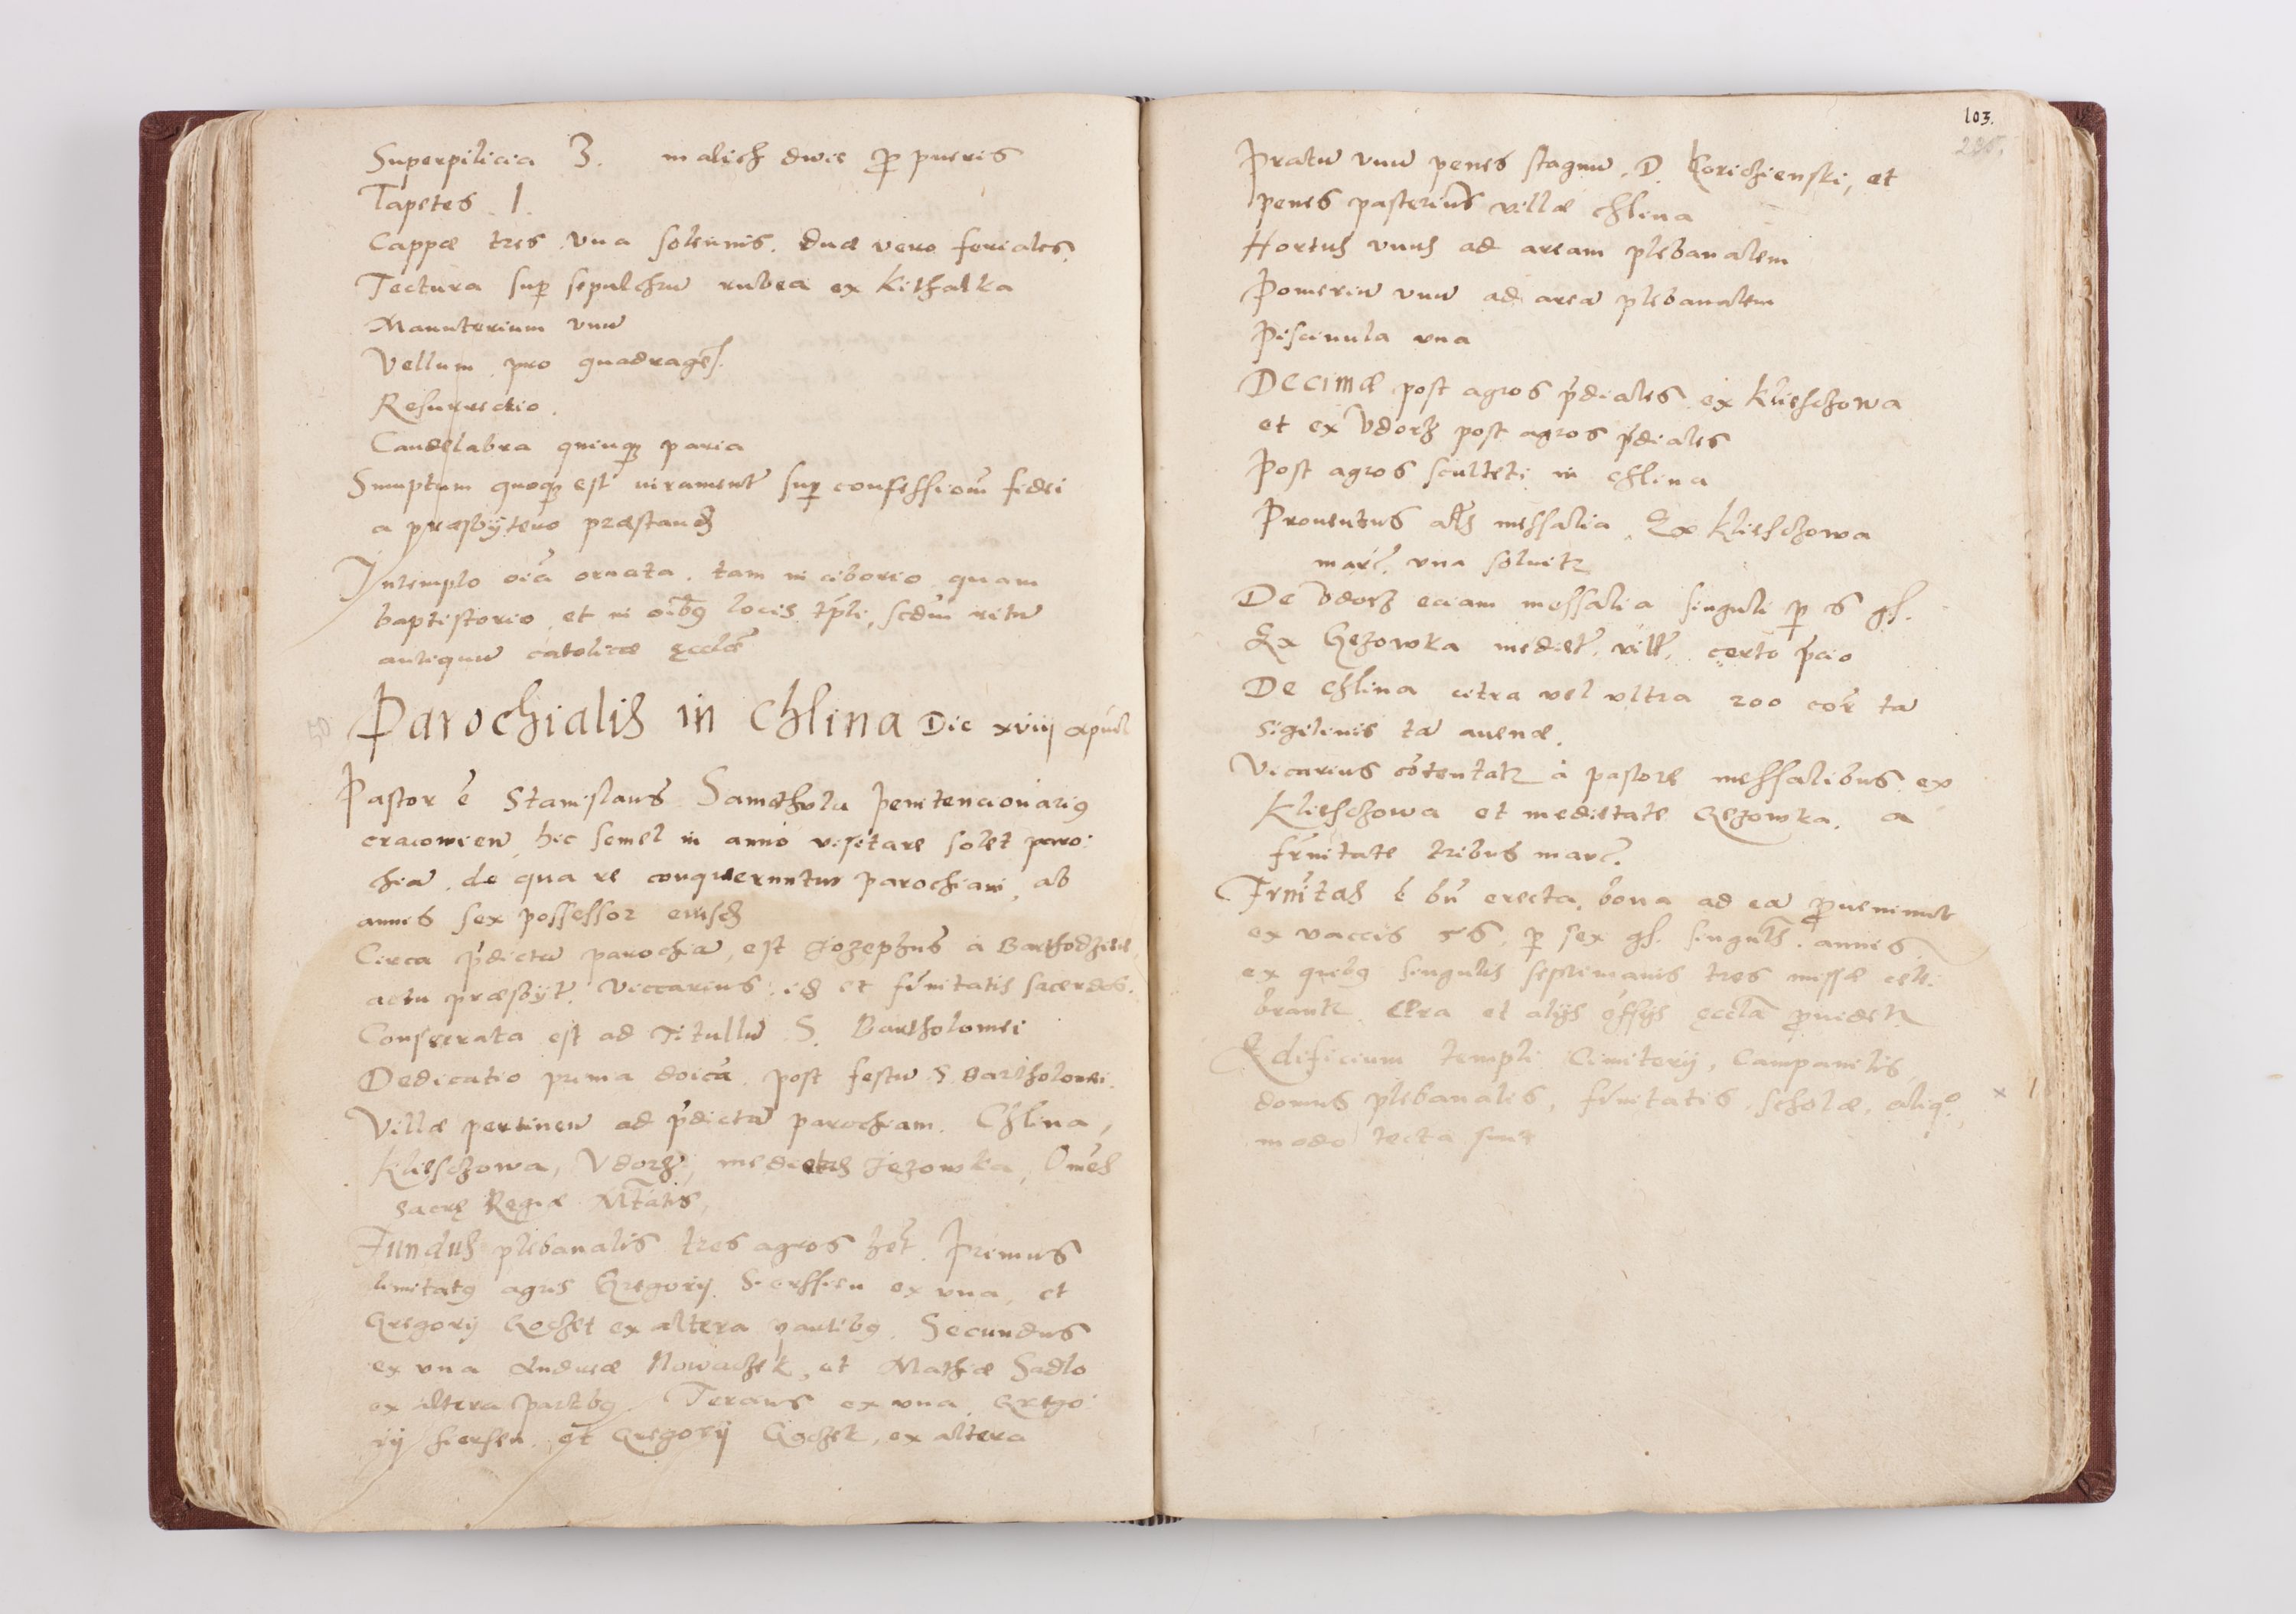 Superpilicia 3. malich dwie p pueris
Tapetes 1.
Cappæ tres vna solennis. duæ vero feriales.
Tectura sup sepulchrū rubea ex kithaika
Manuterium vnū
Vellum pro quadrages.
Resurrectio.
Candelabra quinq paria
Sumptum quoq est iurament sup confessionē fidei
a præsbytero præstand
In templo oīa ornata. tam in ciborio quam
baptisterio et in oībꝰ locis tpli, scdm ritū
antiquū catolicæ ęcclæ
Parochialis in Chlina Die xviij april
Pastor ē Stanislaus Penitencionariꝰ
cracowien hic semel in anno visitare solet paro
chiā. de qua re conqueruntur parochiani, ab
annis sex possessor
Circa pdictā parochiā, est Jozephus a
actu præsbyt. viccarius. id et frnitatis sacerdos.
Consecrata est ad Titullū S. Bartholomei
Dedicatio prima doica post festū S. Bartholomei.
Villæ pertinen ad pdictā parochiam. Chlina,
Klieschowa, Vdorz, medietas Jezowka, Omes
sacrę Regiæ Mtatis,
Fundus plebanalis tres agros het. Primus
limitatꝰ agris Gregorij ex vna, et
Gregorij ex altera partibꝰ. Secundus
ex vna Andreæ Nowachek, et Mathiæ Sadlo
ex altera partibꝰ. Tercius ex vna. Grego
rij et Gregorij Gochek, ex altera
103.
Pratū vnū penes stagnū. D. Korichienski, et
penes villæ chlina
Hortus vnus ad aream plebanalem
Pomeriū vnū ad areā plebanalem
Piscinula vna
Decimæ post agros pdiales ex Klieschowa
et ex Vdorz post agros pdiales
Post agros sculteti in Chlina
Prouentus als messalia. Ex Klieschowa
marc. vna soluitr
De Vdorz eciam messalia singuli p 6 gs.
Ex Gezowka mediet. vill. certo pcio
De Chlina citra vel vltra 200 cor tā
sigilinis tā auenæ.
Vicarius cōtentatr a pastore messalibus ex
Klieschowa et medietate Gezowka. a
frnitate tribus marc.
Frnitas ē bn erecta, bona ad eā proueniunt
ex vaccis 56, p sex gs. singulis annis
ex quibꝰ singulis septimanis tres missæ cele
brantr. et alijs ęcclā prouidetr
Ædificium templi Cimiterij, Campanilis
domus plebanalis, frnitatis, scholæ, aliqo
modo tecta sunt